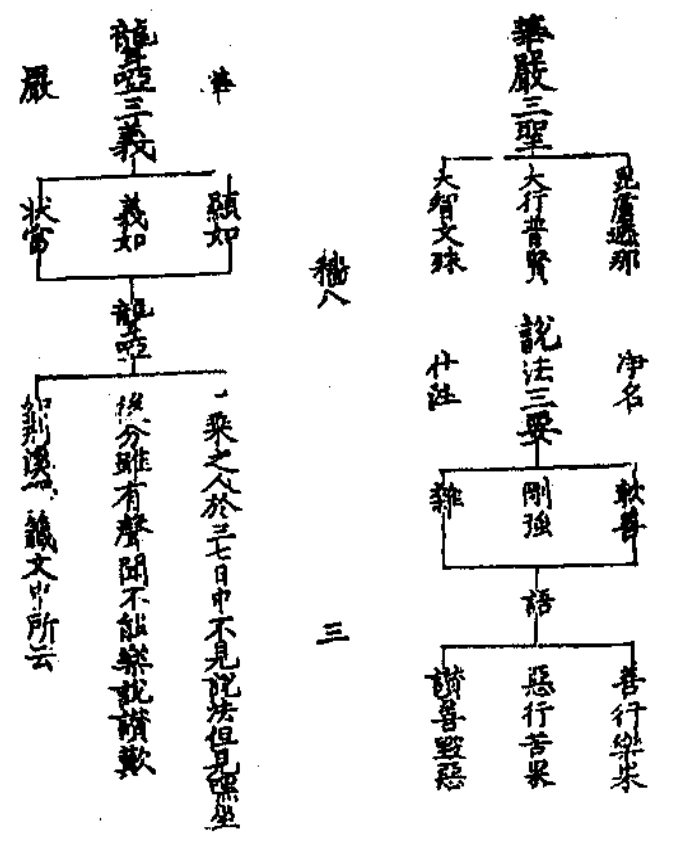 華嚴三聖
毘盧遮那
大行普賢
大智文殊
淨名
說法三要
什註
軟善
剛強
雜
語
善行樂果
惡行苦果
讃善毀惡
八
三
華
聾啞三義
嚴
顯如
義如
状當
聾啞
一乘之人於三七日中不見說法但見默坐
後分雖有聲聞不能樂說讃歎
如荆溪籤文中所云